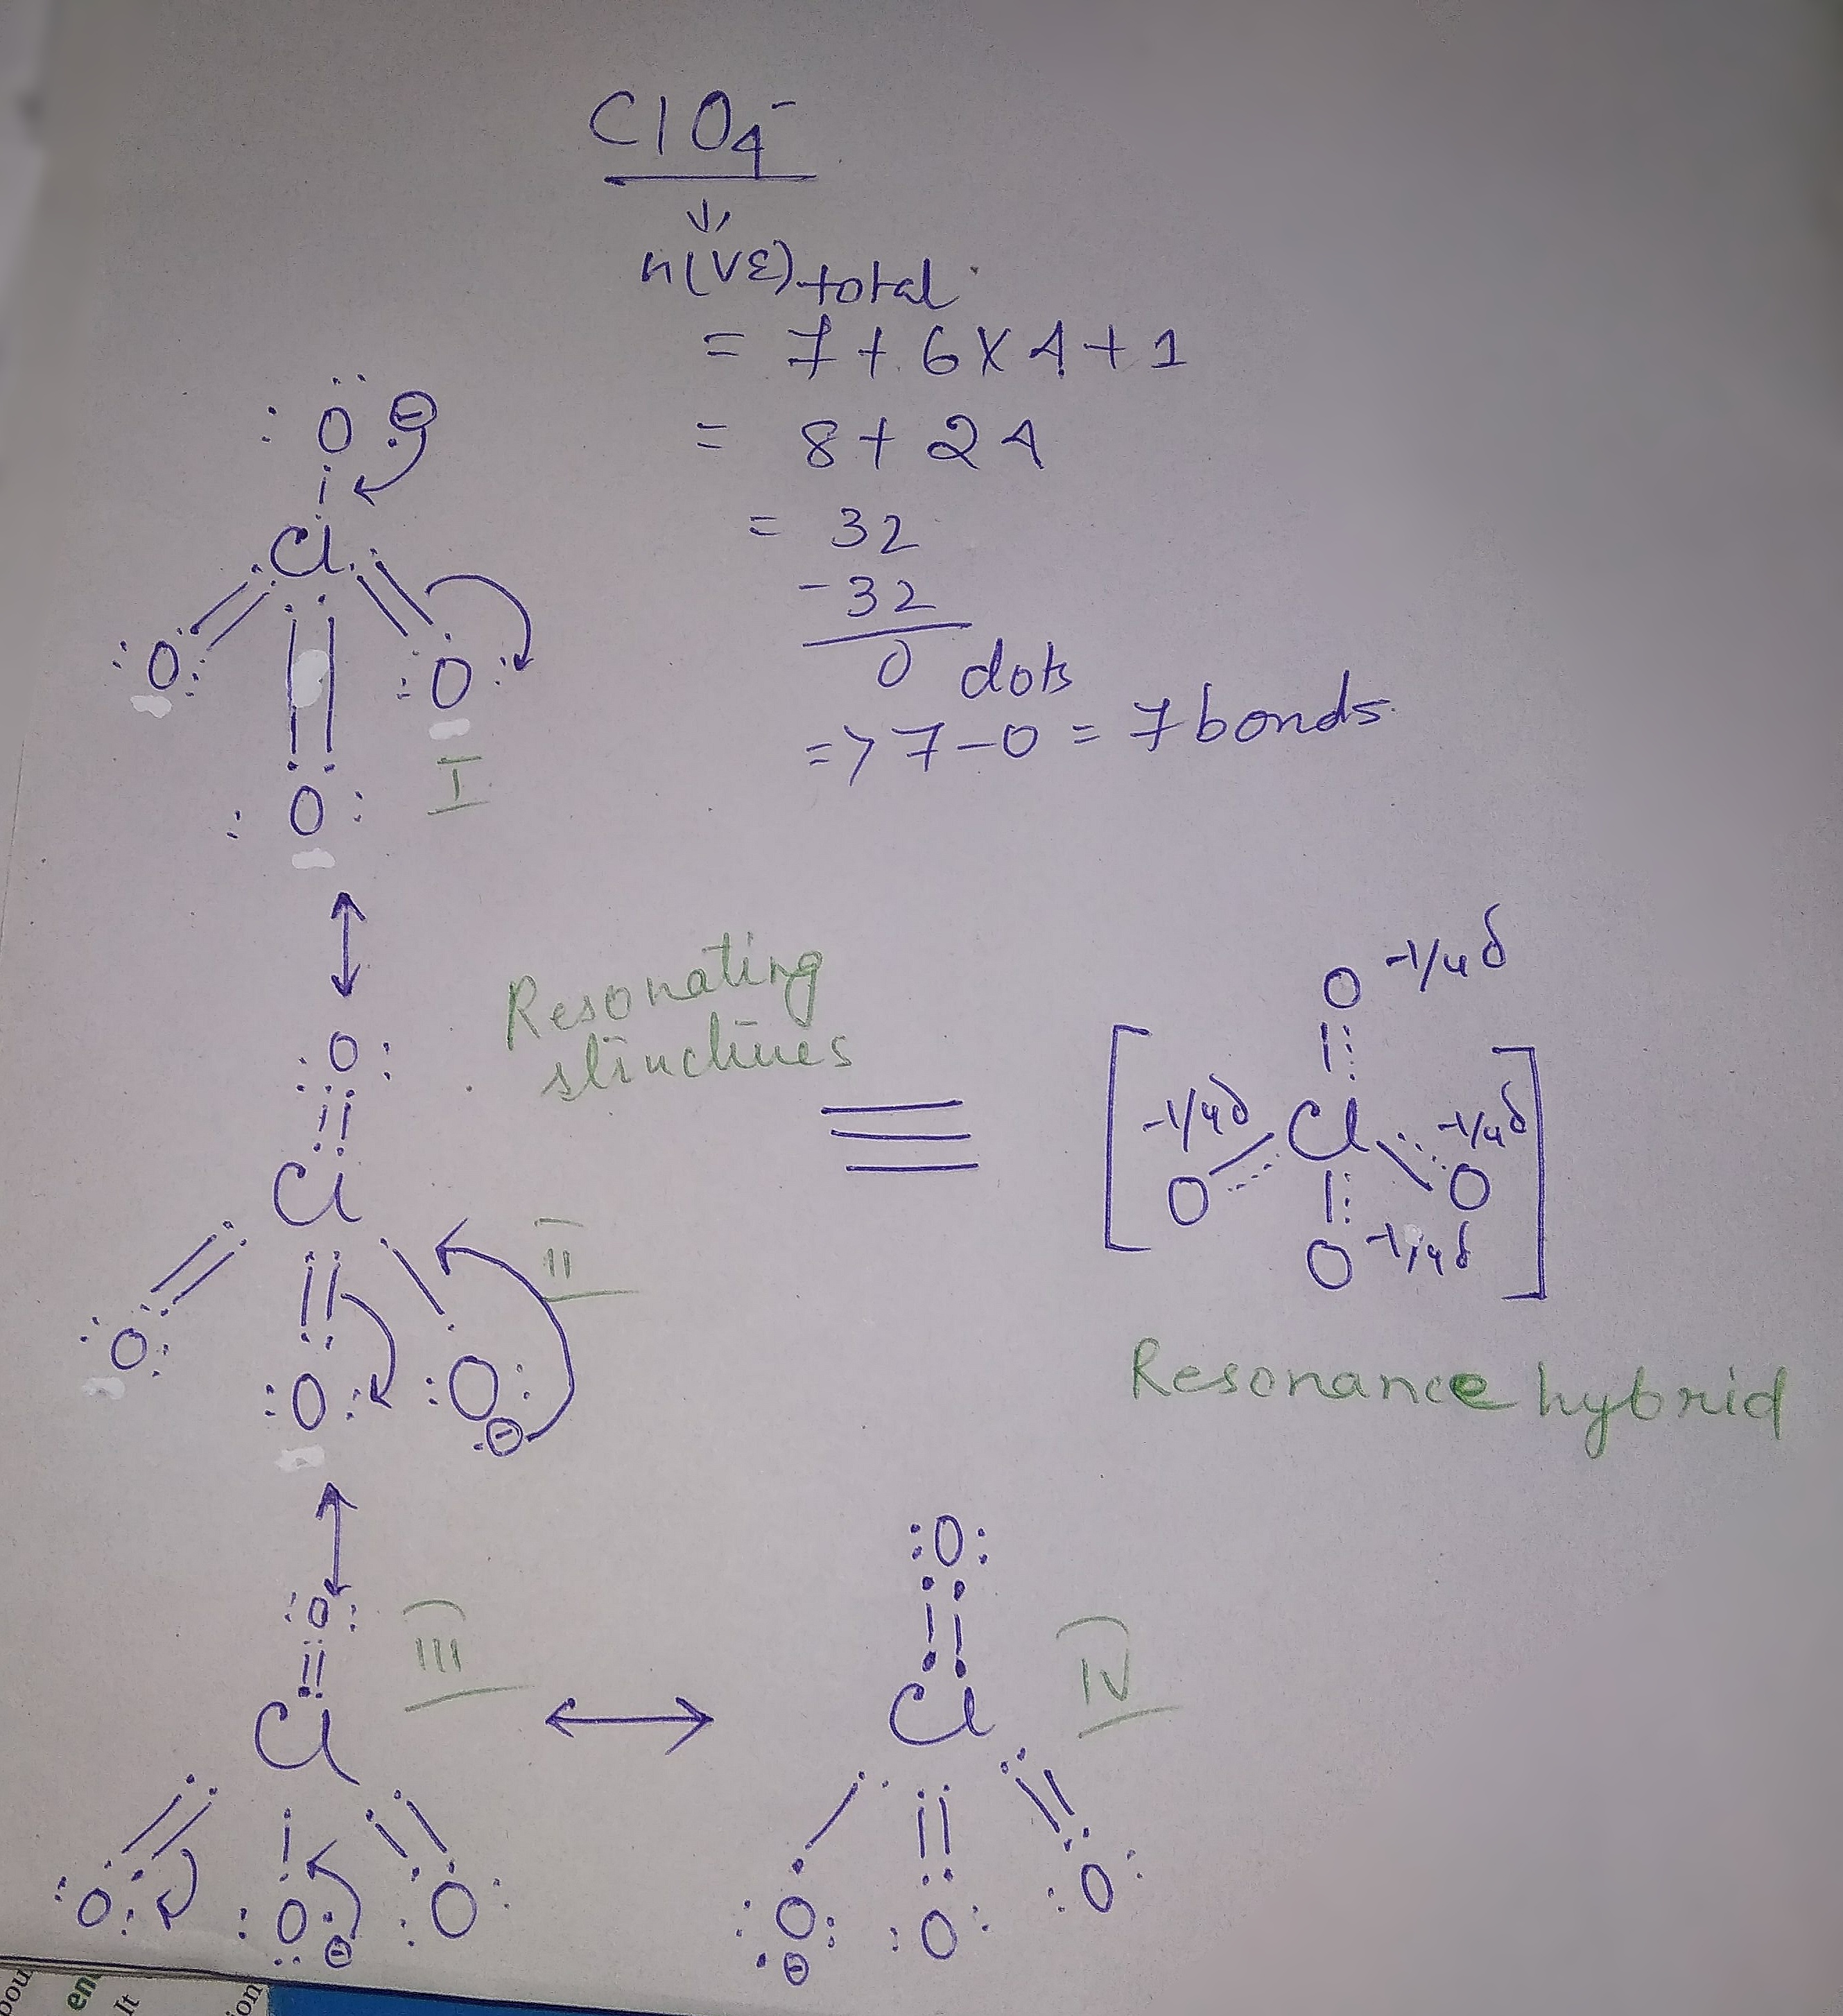 ClO₄⁻
↓
n(VE)total
= 7 + 6 X 4 + 1
= 8 + 24
= 32
-32
0 dots
=> 7 - 0 = 7 bonds
:O ⊖
Cl
:O:
:O:
:O:
I
Resonating
structures
:O:
Cl
:O:
:O:
:O:
⊖
II
≡
O -1/4δ
-1/4δ Cl -1/4δ
O O
O -1/4δ
Resonance hybrid
:O:
III
Cl
:O:
:O:
⊖
:O:
:O:
IV
Cl
:O:
⊖
:O:
:O:
pou
en
It
ion